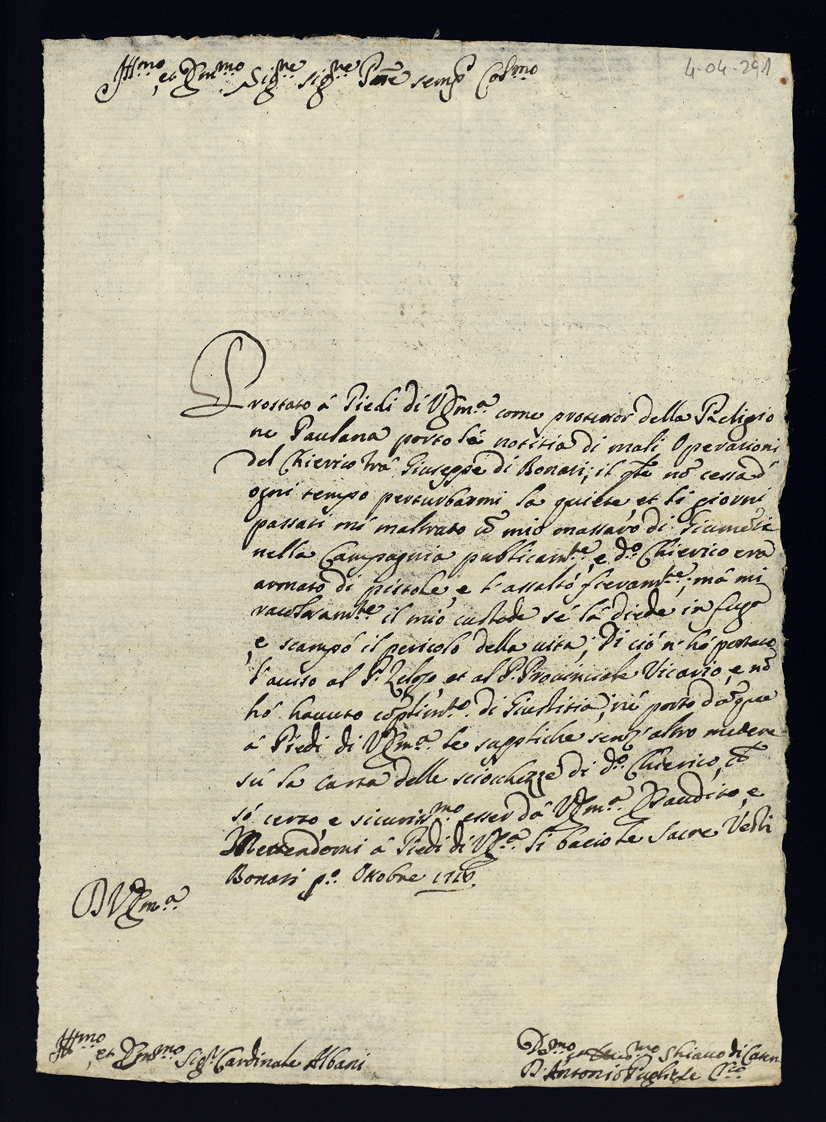 4-04-291
Ill.mo et Em.mo Sig.re Sig.re P̃ne semp. Col.mo
Prostato á Piedi di V. Em.a come protettor della Religio
ne Paulana porto lá notitia di mali Operationi
del Chierico frá Giuseppe di Bonati; il q̃le nõ cessa d'
ogni tempo perturbarmi la quiete, et li giorni
passati mi maltrató cõ mio massaro di Giumente
nella Campagnia publicam.te, e d.o Chierico era
armato di pistole, e l'assaltó fieram.te, má mi
racolosam.te il mio custode sé la diede in fuga
, e scampó il pericolo della vita; Di ció n' hó portato
l'aviso al P. Zeloso, et al P. Provinciale Vicario, e nõ
hó havuto complim.to di Giustitia; né porto dũque
á Piedi di V. Em.a le suppliche senz'altro
sú la carta delle sciochezze di d.o Chierico, cõ
só certo e sicuriss.mo esser dá V. Em.a Esaudito, e
Mettendomi á Piedi di V. Em.a li bacio le Sacre Vesti
Bonati p.o Ottobre
D V. Em.a
Ill.mo et Em.mo Sig.r Cardinale Albani
D.mo et mo Schiavo di Caten
D. Antonio Pugliese